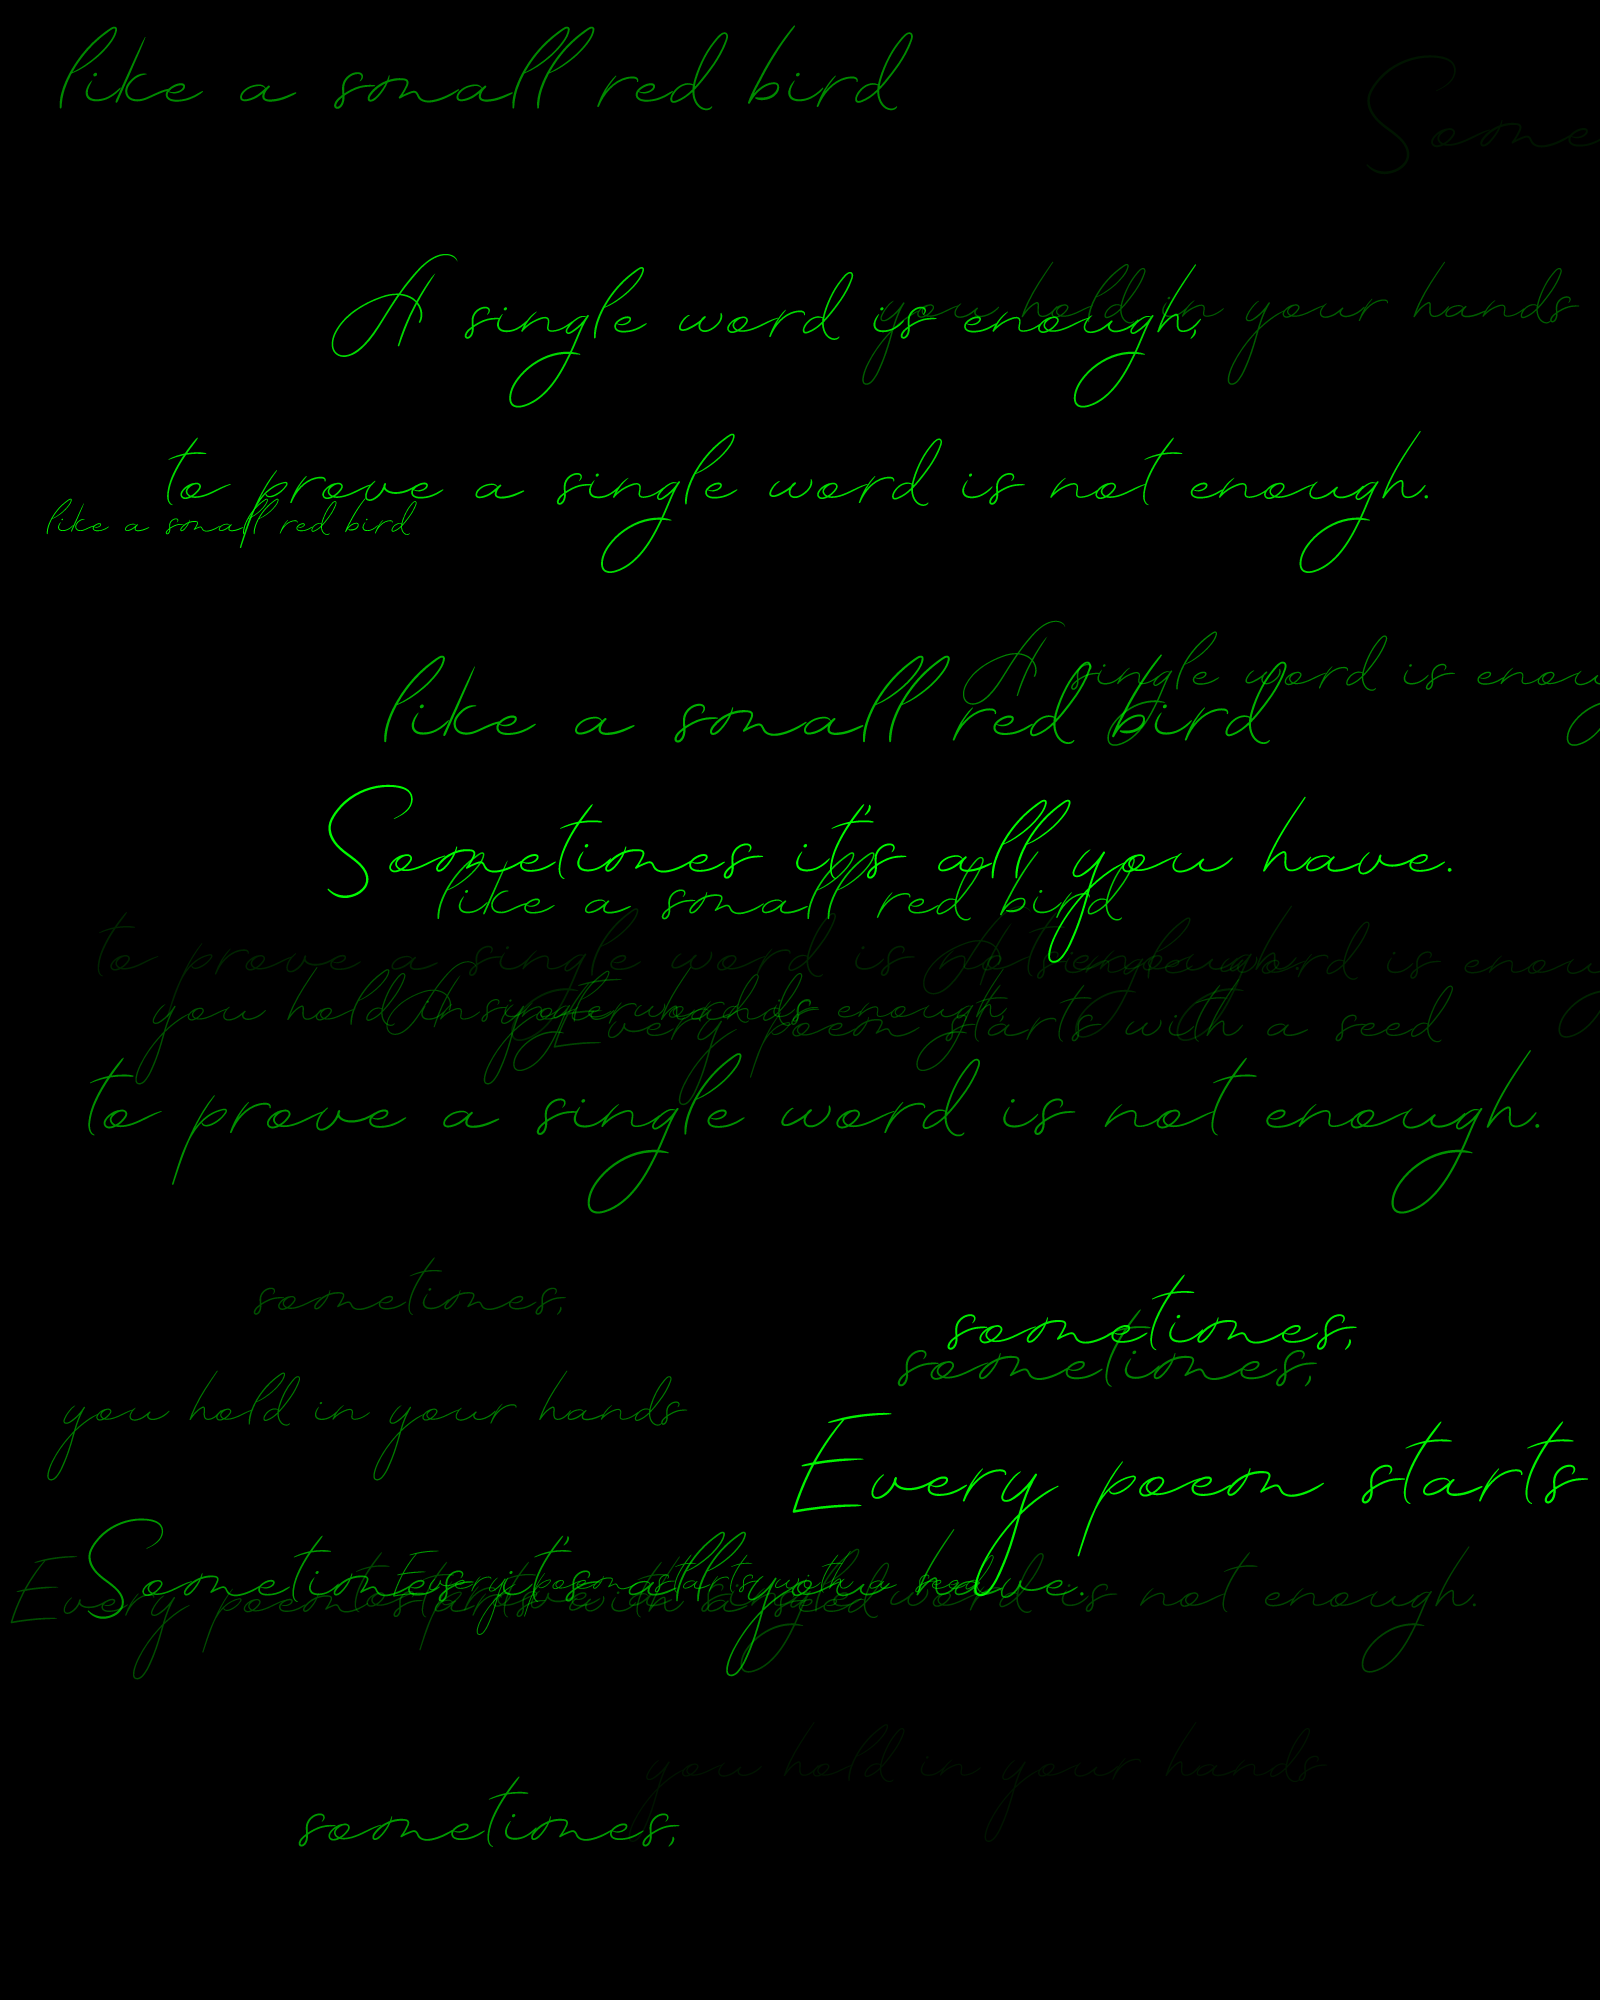 like a small red bird
Some
you hold in your hands
A single word is enough,
to prove a single word is not enough.
like a small red bird
A single word is enou
like a small red bird
Sometimes it's all you have.
like a small red bird
to prove a single word is not enough.
A single word is enou
you hold in your hands
A single word is enough,
Every poem starts with a seed
to prove a single word is not enough.
sometimes,
sometimes,
sometimes,
you hold in your hands
Every poem starts
Sometimes it's all you have.
Every poem starts with a seed
Every poem starts with a seed
to prove a single word is not enough.
you hold in your hands
sometimes,